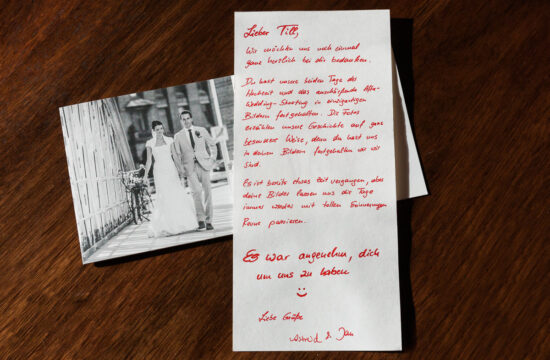 Lieber Till,
Wir möchten uns noch einmal
ganz herzlich bei dir bedanken.
Du hast unsere beiden Tage der
Hochzeit und das anschließende After-
Wedding-Shooting in einzigartigen
Bildern festgehalten. Die Fotos
erzählen unsere Geschichte auf ganz
besondere Weise, denn du hast uns
in deinen Bildern festgehalten wie wir
sind.
Es ist bereits etwas Zeit vergangen, aber
deine Bilder lassen uns die Tage
immer wieder mit tollen Erinnerungen
Revue passieren.
Es war angenehm, dich
um uns zu haben
Liebe Grüße
Astrid & Jan